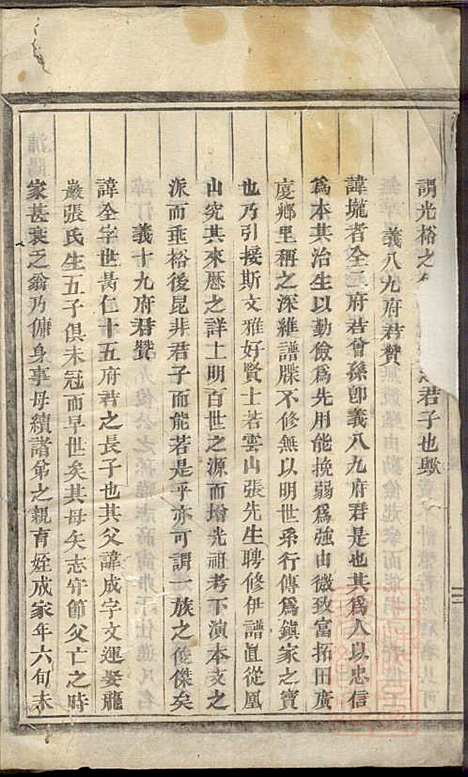 謂光裕之
君子也歟
義八九府君贊
諱壠者全三府君曾孫卽義八九府君是也其爲人以忠信
爲本共治生以勤儉爲先用能挽弱爲強由微致富拓田廣
廈鄉里稱之深維譜牒不修無以明世系行傳爲鎮家之寶
也乃引接斯文雅好賢士若雲山張先生聘修伊譜直從鳳
山究其來歷之詳上明百世之源而增光祖考下演本支之
派而垂裕後昆非君子而能若是乎亦可謂一族之俊傑矣
義十九府君贊
諱全字世黃仁十五府君之長子也其父諱成字文運娶龍
巖張氏生五子俱未冠而早世矣其母矢志守節父亡之時
家甚衰乏翁乃傭身事母續諸弟之親育姪成家年六旬未